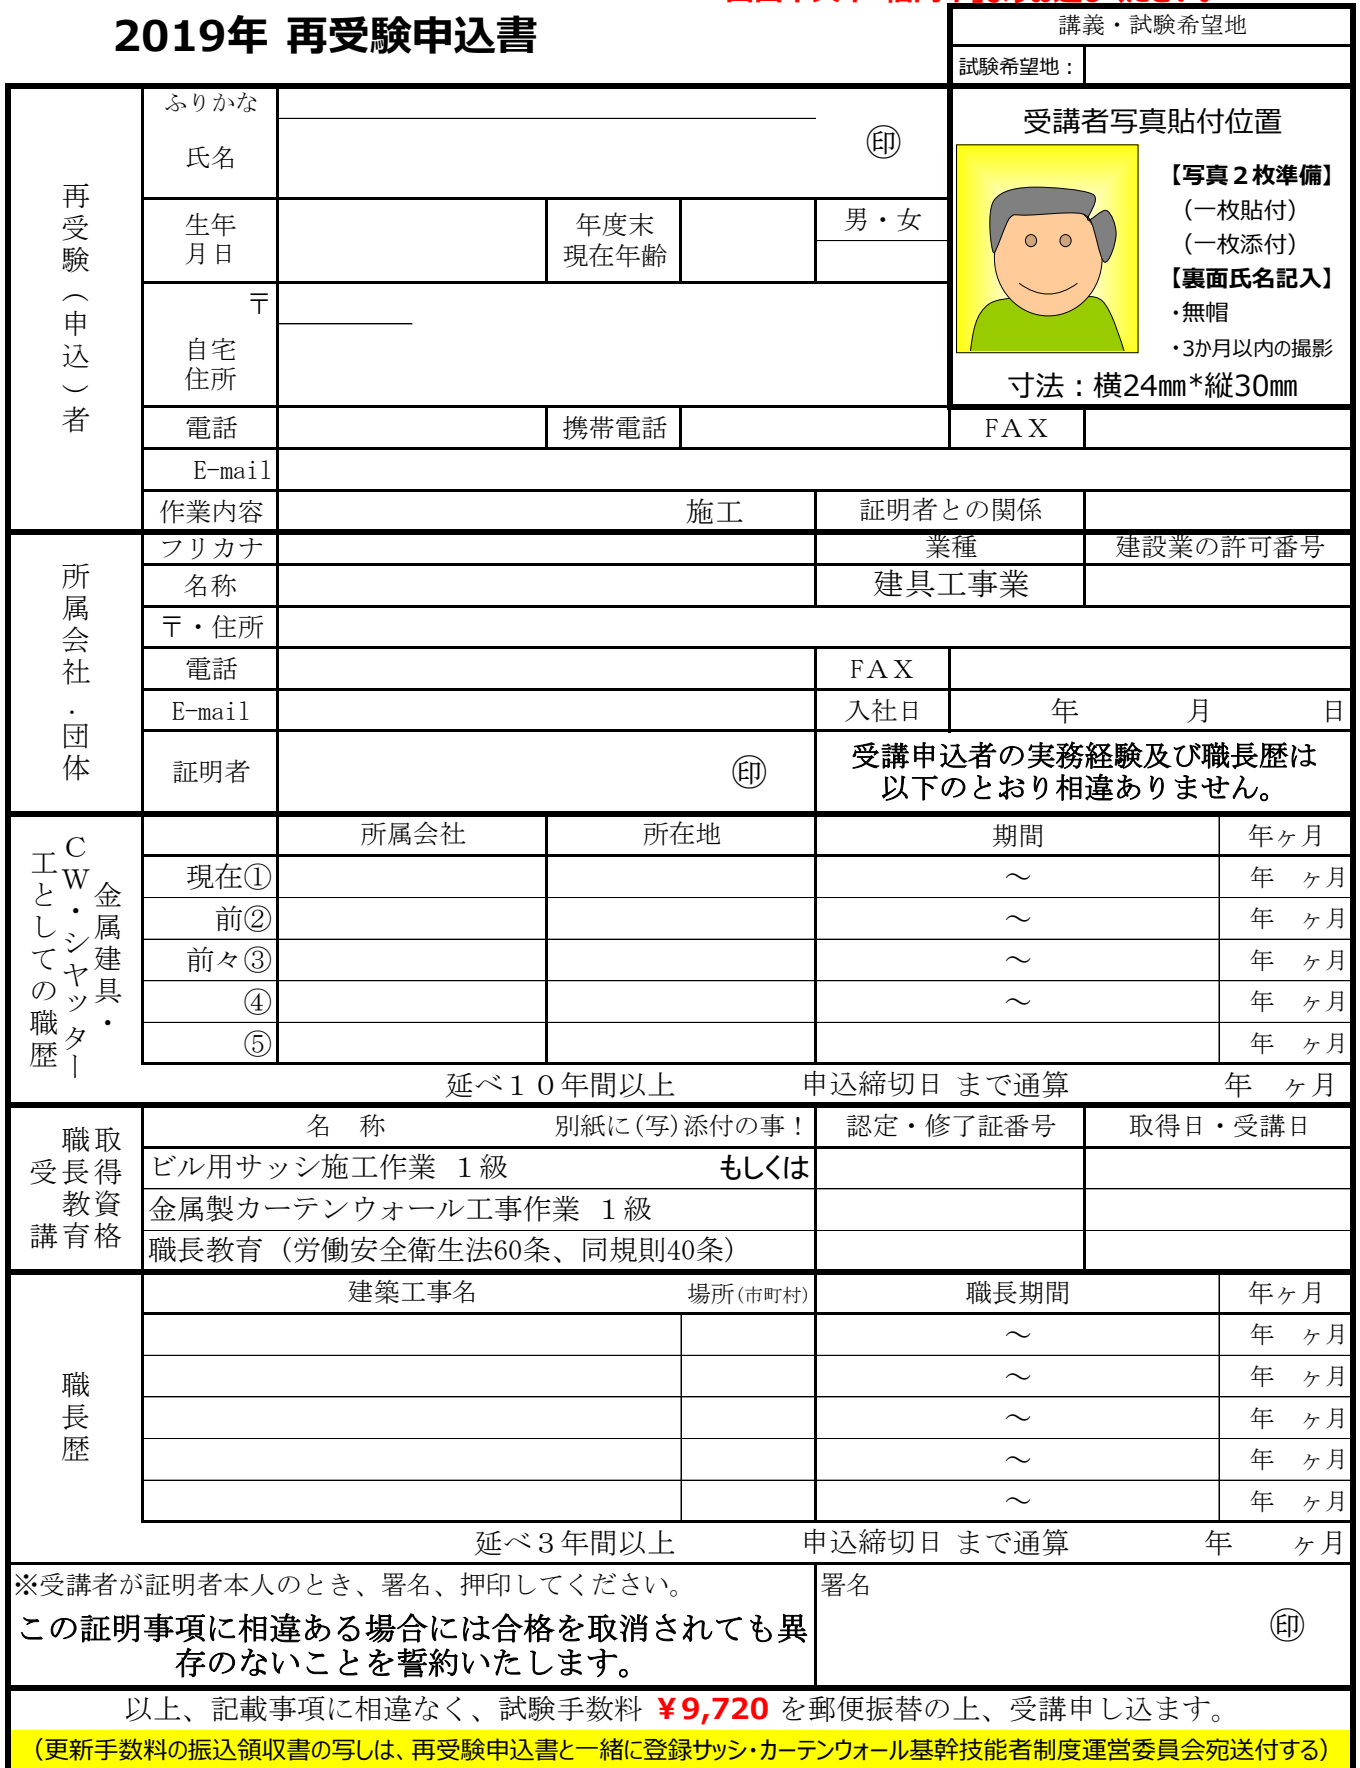 2019年 再受験申込書
講義・試験希望地
試験希望地：
再受験（申込）者
ふりかな
氏名
㊞
受講者写真貼付位置
【写真２枚準備】
（一枚貼付）
（一枚添付）
【裏面氏名記入】
・無帽
・3か月以内の撮影
寸法：横24㎜*縦30㎜
生年
月日
年度末
現在年齢
男・女
〒
自宅
住所
電話
携帯電話
ＦＡＸ
E-mail
作業内容
施工
証明者との関係
所属会社．団体
フリカナ
業種
建設業の許可番号
名称
建具工事業
〒・住所
電話
ＦＡＸ
E-mail
入社日
年 月 日
証明者
㊞
受講申込者の実務経験及び職長歴は
以下のとおり相違ありません。
金属建具・
ＣＷ・シヤッター
工としての職歴
所属会社 所在地 期間 年ヶ月
現在① ～ 年 ヶ月
前② ～ 年 ヶ月
前々③ ～ 年 ヶ月
④ ～ 年 ヶ月
⑤ 年 ヶ月
延べ１０年間以上 申込締切日 まで通算 年 ヶ月
取得資格
職長教育
受講
名 称 別紙に(写)添付の事！ 認定・修了証番号 取得日・受講日
ビル用サッシ施工作業 １級 もしくは
金属製カーテンウォール工事作業 １級
職長教育（労働安全衛生法60条、同規則40条）
職長歴
建築工事名 場所(市町村) 職長期間 年ヶ月
～ 年 ヶ月
～ 年 ヶ月
～ 年 ヶ月
～ 年 ヶ月
～ 年 ヶ月
延べ３年間以上 申込締切日 まで通算 年 ヶ月
※受講者が証明者本人のとき、署名、押印してください。
この証明事項に相違ある場合には合格を取消されても異
存のないことを誓約いたします。
署名
㊞
以上、記載事項に相違なく、試験手数料 ￥9,720 を郵便振替の上、受講申し込ます。
（更新手数料の振込領収書の写しは、再受験申込書と一緒に登録サッシ・カーテンウォール基幹技能者制度運営委員会宛送付する）